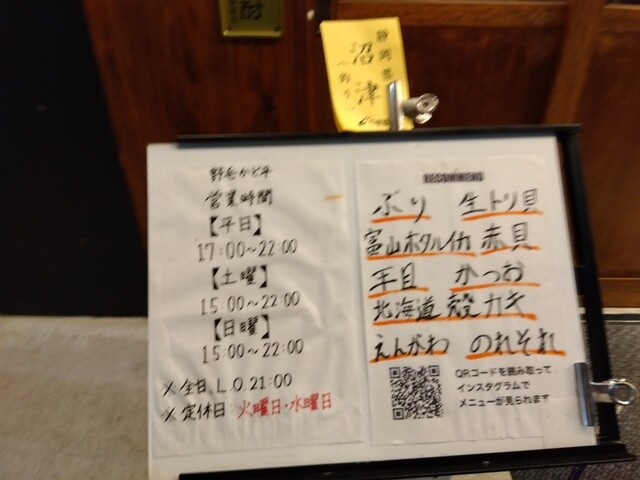 静岡県
沼津
野毛かど平
営業時間
【平日】
17:00～22:00
【土曜】
15:00～22:00
【日曜】
15:00～22:00
※全日L.O.21:00
※定休日:火曜日・水曜日
RECOMMEND
ぶり 生トリ貝
富山ホタルイカ 赤貝
平目 かつお
北海道 殻カキ
えんがわ のれそれ
QRコードを読み取って
インスタグラムで
メニューが見られます